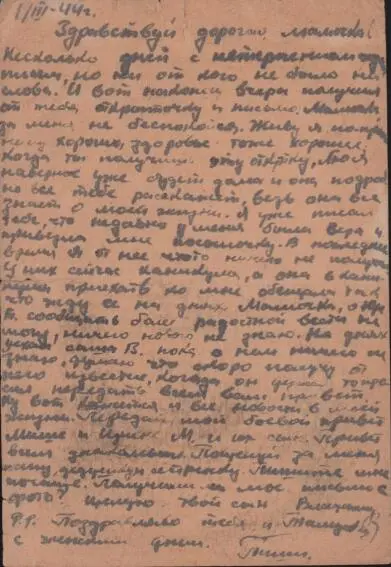 1/III-44г.
Здравствуй дорогая Мамочка!
Несколько дней с нетерпением
писем, но ни от кого не было ни
слова. И вот наконец вчера получил
от тебя открыточку и письмо. Мамочка
за меня не беспокойся. Живу я
хорошо, здоровье тоже хорошее.
Когда ты получишь эту открытку, Люся
наверное уже будет дома и она
но все тебе расскажет, ведь она все
знает о моей жизни. Я уже писал
тебе, что недавно у меня была Вера и
привезла мне посылочку. В последнее
время я от нее что-то ничего не получ
У них сейчас каникулы, а она в
приехать ко мне обещала так
что жду ее на днях. Мамочка, о
В. сообщить более радостной вести не
могу, ничего нового не знаю. На днях
В. пока о нем ничего не
знаю. Думаю что скоро получу от
него известие, когда он уезжал
передать всем вам привет.
Ну вот кажется и все новости в моей
жизни. Передай мой боевой привет
Мише и М. и их сын. Привет
всем знакомым. Поцелуй за меня
дедушку и сестренку. Пишите мне
почаще. Получили ли мое письмо и
фото? Целую твой сын
P.P. Поздравляю тебя и Тамару
с женским днем.